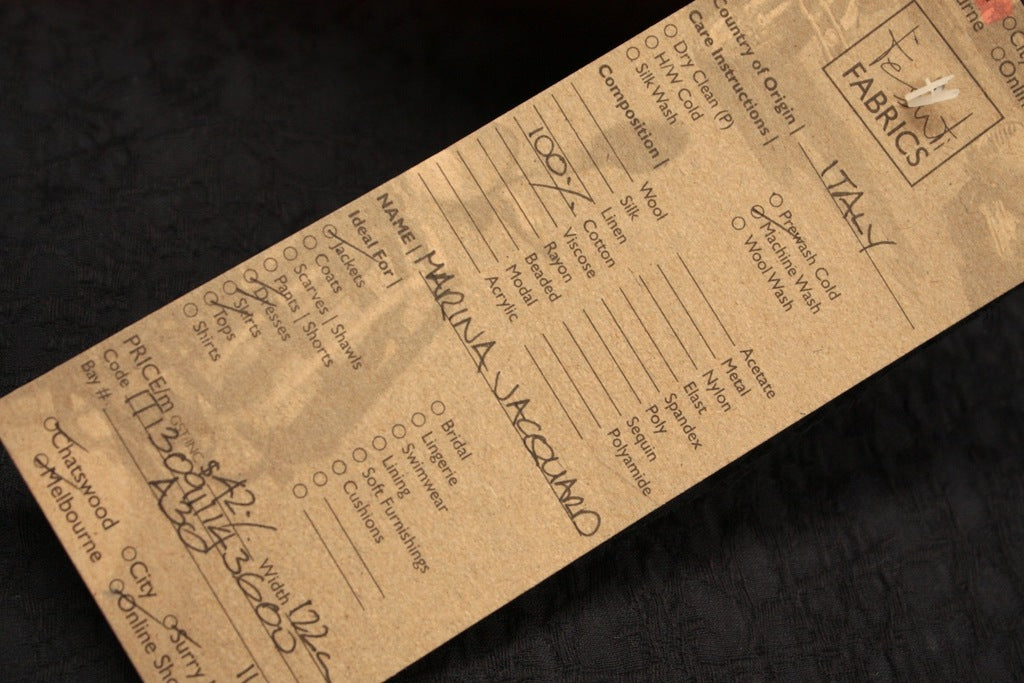 Tessuti
FABRICS
Country of Origin | ITALY
Care Instructions |
Dry Clean (P)
H/W Cold
Silk Wash
Prewash Cold
Machine Wash
Wool Wash
Composition |
Wool
Silk
Linen
100% Cotton
Viscose
Rayon
Beaded
Modal
Acrylic
Acetate
Metal
Nylon
Elast
Spandex
Poly
Sequin
Polyamide
NAME | MARINA JACQUARD
Ideal For |
Jackets
Coats
Scarves | Shawls
Pants | Shorts
Dresses
Skirts
Tops
Shirts
Bridal
Lingerie
Swimwear
Lining
Soft Furnishings
Cushions
PRICE/m GST INC $42.- Width 122c
Code
Bay # A30
Chatswood
Melbourne
City
Online Sho
Surry
urne
Onlin